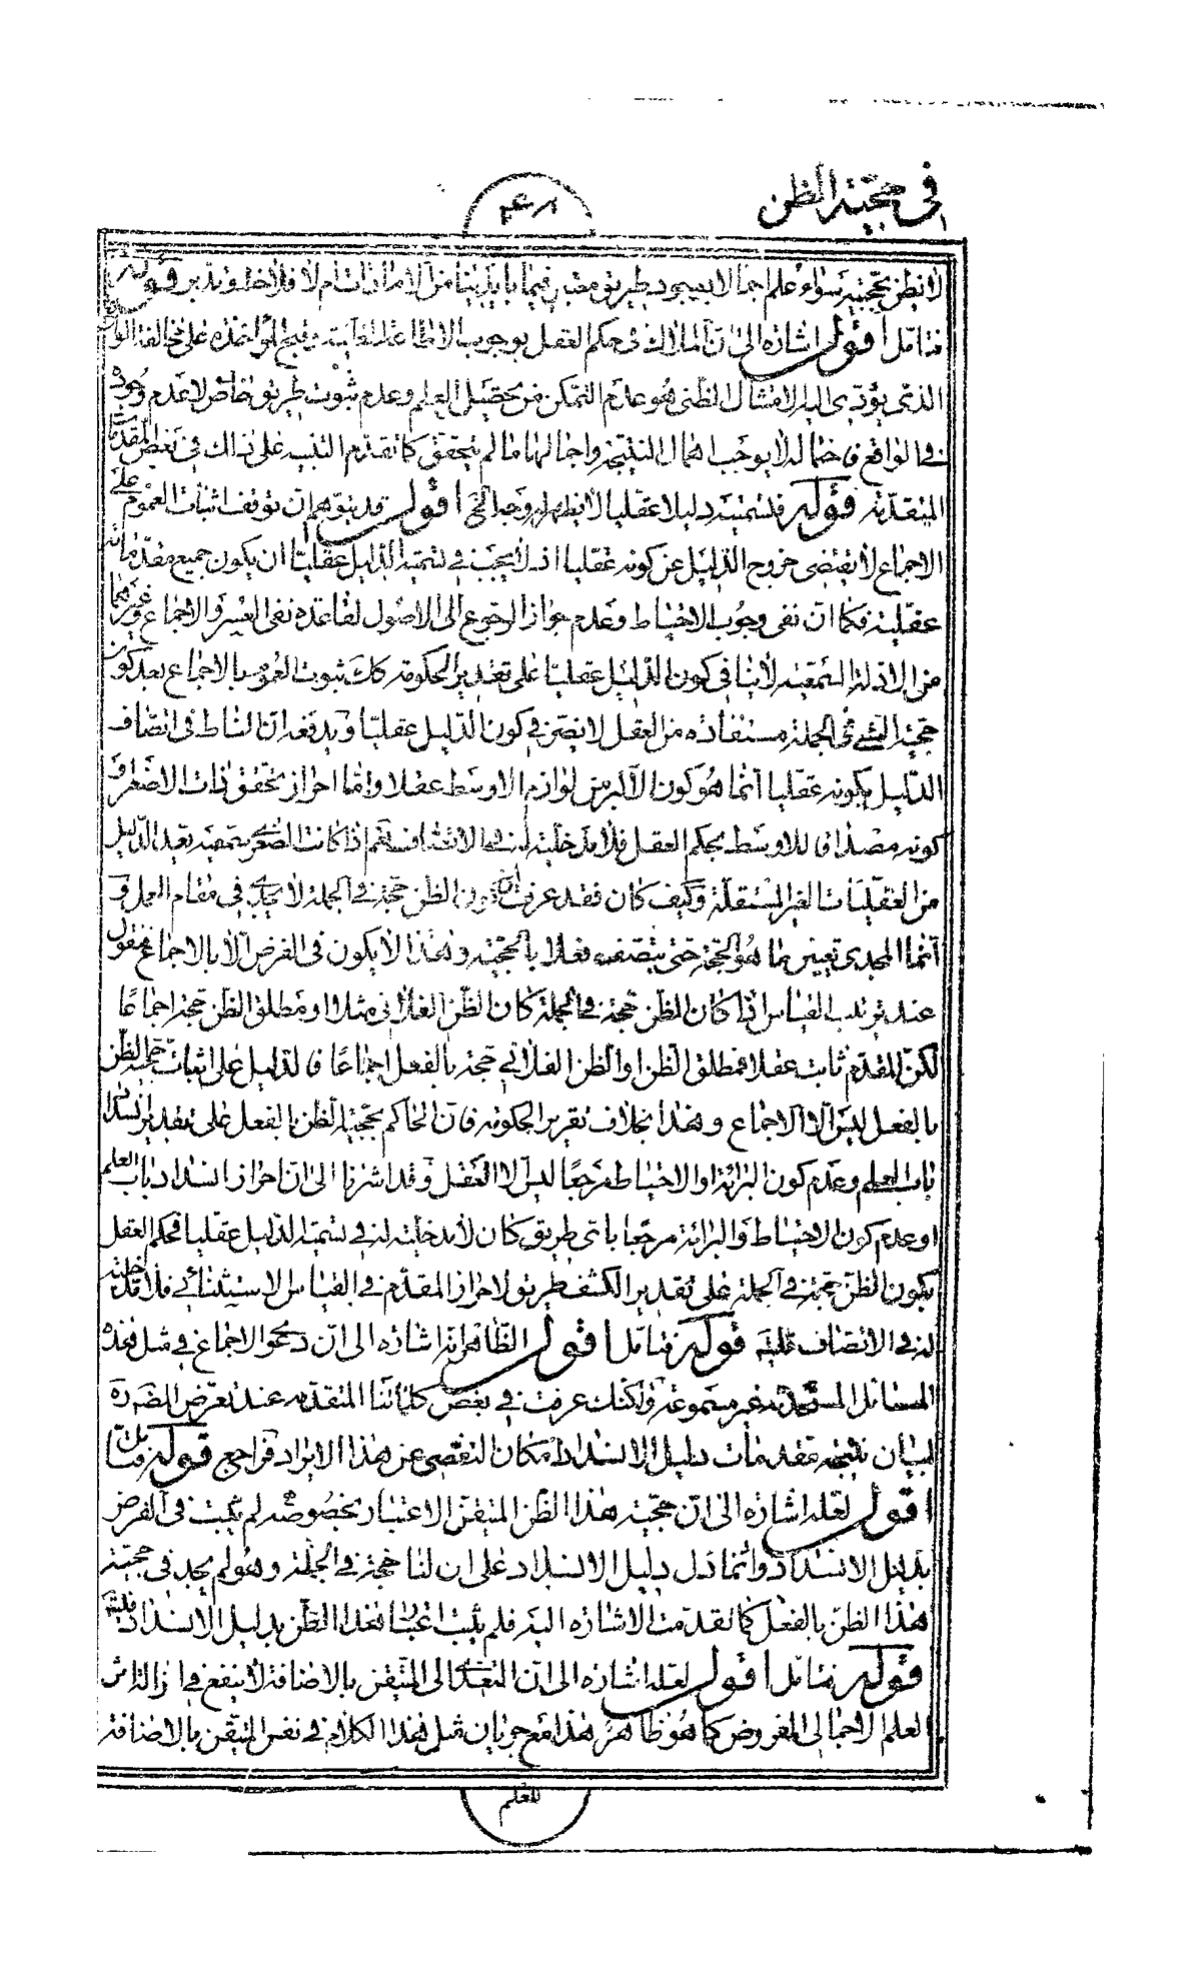 في حجية الظن
لا نظن بحجيته سواء علم اجمالا بوجود طريق معتبر فيما بايدينا من الامارات ام لا فلاحظ وتدبر قوله
فتامل اقول اشارة الى ان الملاك في حكم العقل بوجوب الاطاعة الظنية وقبح المؤاخذة على مخالفة الواقع
الذي يؤدي اليه الامتثال الظني هو عدم التمكن من تحصيل العلم وعدم ثبوت طريق خاص لا عدم وجوده
في الواقع فاحتماله لا يوجب اهمال النتيجة واجمالها ما لم يتحقق كما تقدم التنبيه على ذلك في بعض المقدمات
المتقدمة قوله فتسميته دليلا عقليا لا يظهر له وجه الخ اقول قد يتوهم ان توقف اثبات العموم على
الاجماع لا يقتضي خروج الدليل عن كونه عقليا اذ لا يجب في تسمية الدليل عقليا ان يكون جميع مقدماته
عقلية فكما ان نفى وجوب الاحتياط وعدم جواز الرجوع الى الاصول لقاعدة نفى العسر والاجماع وغيرهما
من الادلة السمعية لا ينافي كون الدليل عقليا على تقدير الحكومة كك ثبوت العموم بالاجماع بعد كون
حجية الشيء في الجملة مستفادة من العقل لا يضر في كون الدليل عقليا ويدفعه ان المناط في اتصاف
الدليل بكونه عقليا انما هو كون الاكبر من لوازم الاوسط عقلا واما احراز تحقق ذات الاصغر و
كونه مصداقا للاوسط بحكم العقل فلا مدخلية له في الاتصاف نعم اذا كانت الصغرى سمعية يعد الدليل
من العقليات الغير المستقلة وكيف كان فقد عرفت ان كون الظن حجة في الجملة لا يجدى في مقام العمل و
انما المجدى تعيين ما هو الحجة حتى يتصف فعلا بالحجية وهذا لا يكون في الفرض الا بالاجماع فنقول
عند ترتيب القياس اذا كان الظن حجة في الجملة كان الظن الفلاني مثلا او مطلق الظن حجة اجماعا
لكن المقدم ثابت عقلا فمطلق الظن او الظن الفلاني حجة بالفعل اجماعا فالدليل على اثبات حجية الظن
بالفعل ليس الا الاجماع وهذا بخلاف تقرير الحكومة فان الحاكم بحجية الظن بالفعل على تقدير انسداد
باب العلم وعدم كون البرائة او الاحتياط مرجعا ليس الا العقل وقد اشرنا الى ان احراز انسداد باب العلم
او عدم كون الاحتياط والبرائة مرجعا باي طريق كان لا مدخلية له في تسمية الدليل عقليا فحكم العقل
بكون الظن حجة في الجملة على تقدير الكشف طريق لاحراز المقدم في القياس الاستثنائي فلا مدخلية
له في الاتصاف قوله فتامل اقول الظاهر انه اشارة الى ان دعوى الاجماع في مثل هذه
المسائل المستحدثة غير مسموعة ولكنك عرفت في بعض كلماتنا المتقدمة عند تعرض المص ره
لبيان نتيجة مقدمات دليل الانسداد امكان التفصي عن هذا الايراد فراجع قوله فتامل
اقول لعله اشارة الى ان حجية هذا الظن المتيقن الاعتبار بخصوصه لم يثبت في الفرض
بدليل الانسداد وانما دل دليل الانسداد على ان لنا حجة في الجملة وهو لم يجد في حجية
هذا الظن بالفعل كما تقدمت الاشارة اليه فلم يثبت اعتبار هذا الظن بدليل الانسداد
قوله فتامل اقول لعله اشارة الى ان التعدى الى المتيقن بالاضافة لا ينفع في ازالة اثر
العلم الاجمالي المفروض كما هو ظاهر هذا مع جريان مثل هذا الكلام في نفس المتيقن بالاضافة
للعلم